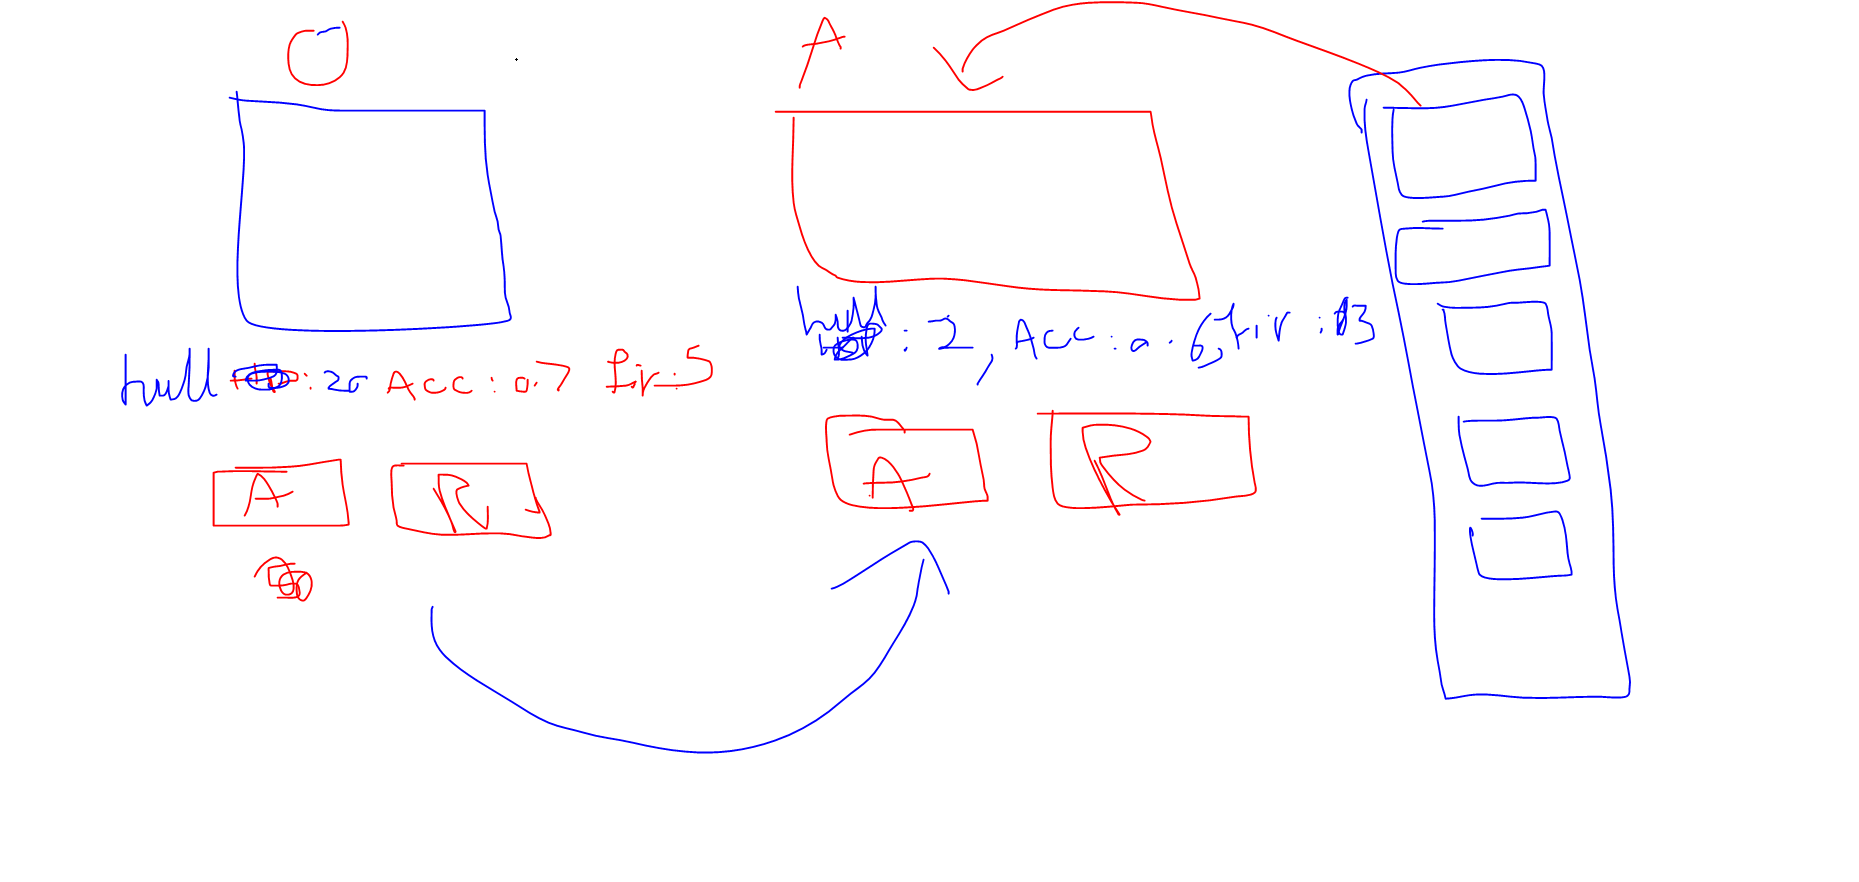 O
A
hull : 20 Acc : 0.7 fir : 5
hull : 2, Acc : 0.6, fir : 3
A R
A R